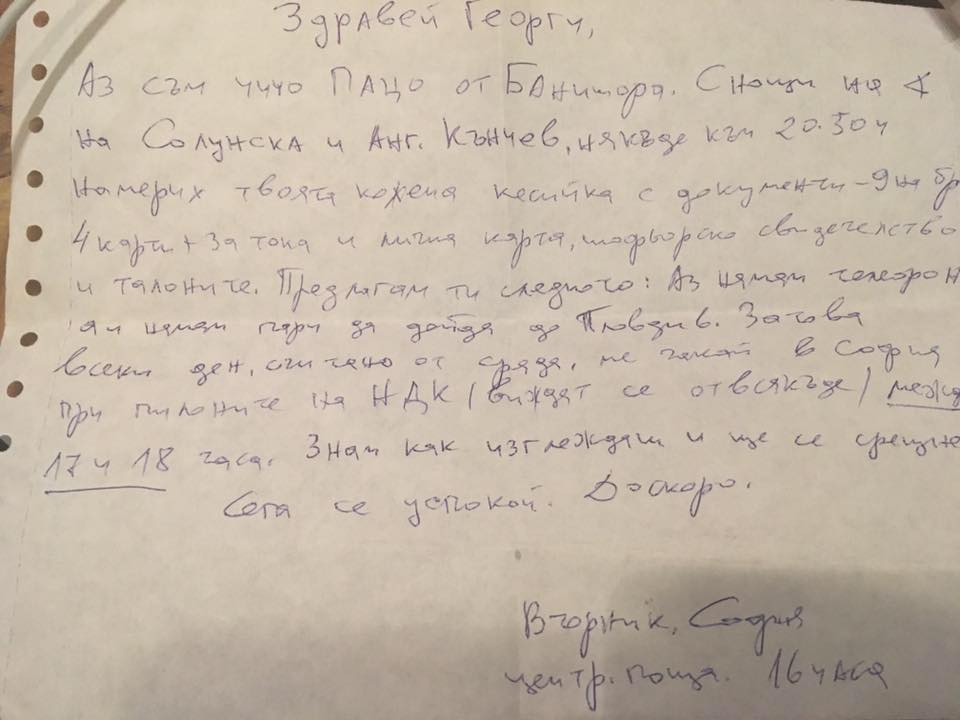 Здравей Георги,
Аз съм чичо Пацо от Банишора. Снощи на ∢
на Солунска и Анг. Кънчев, някъде към 20.50 ч
намерих твоята кожена кесийка с документи - 9 на бр
4 карти + за тока и лична карта, шофьорско свидетелство
и талоните. Предлагам ти следното: Аз нямам телефон
а и нямам пари да дойда до Пловдив. Затова
всеки ден, считано от сряда, ме чакай в София
при пилоните на НДК /виждат се отвсякъде/ межд
17 и 18 часа. Знам как изглеждаш и ще се срещне
Сега се успокой. Доскоро.
Вторник, София
центр. поща. 16 часа